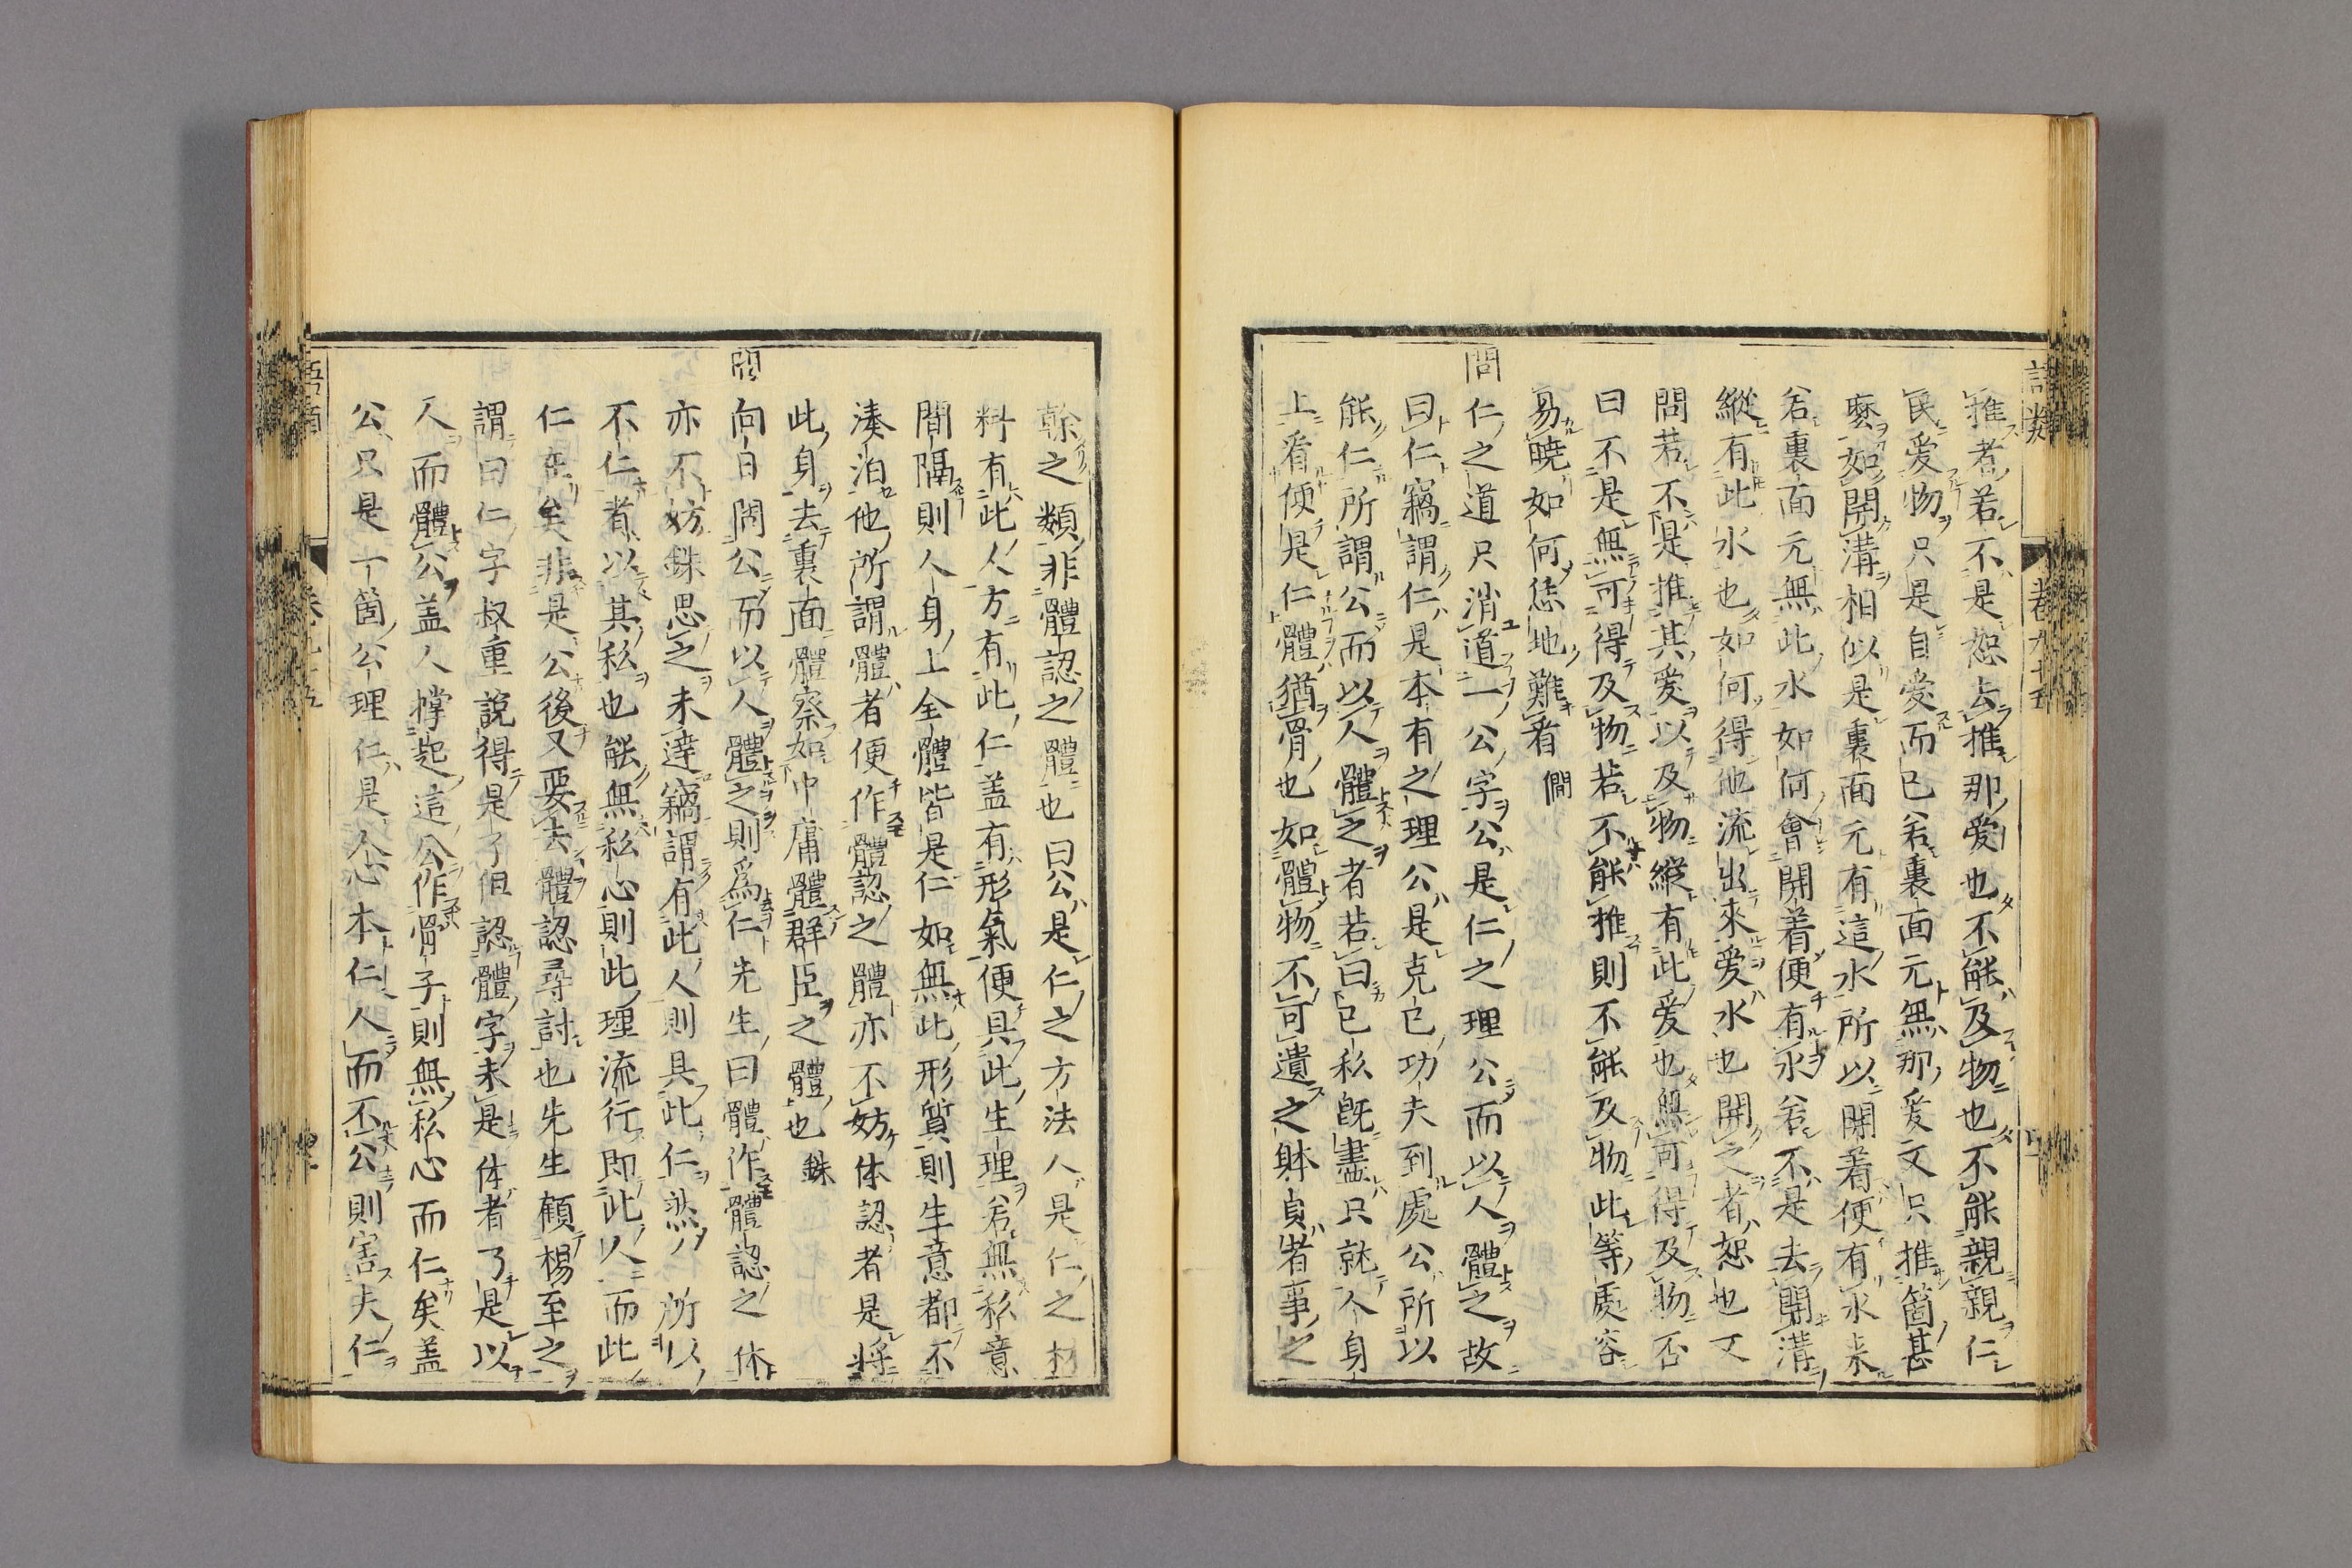 語類 卷九十五
推者若不是恕去推那愛也不能及物也不能親親仁
民愛物只是自愛而已若裏面元無那愛又只推箇甚
麽如開溝相似是裏面元有這水所以開着便有水来
若裏面元無此水如何會開着便有水若不是去開溝
縱有此水也如何得他流出來愛水也開之者恕也又
問若不是推其愛以及物縱有此愛也無可得及物否
曰不是無可得及物若不能推則不能及物此等處容
易曉如何恁地難看 僩
問仁之道只消道一公字公是仁之理公而以人體之故
曰仁竊謂仁是本有之理公是克己功夫到處公所以
能仁所謂公而以人體之者若曰己私既盡只就人身
上看便是仁體猶骨也如體物不可遺之体貞者事之
幹之類非體認之體也曰公是仁之方法人是仁之材
料有此人方有此仁盖有形氣便具此生理若無私意
間隔則人身上全體皆是仁如無此形質則生意都不
湊泊他所謂體者便作體認之體亦不妨体認者是將
此身去裏面體察如中庸體群臣之體也 銖
問向日問公而以人體之則爲仁先生曰體作體認之体
亦不妨銖思之未達竊謂有此人則具此仁然所以
不仁者以其私也能無私心則此理流行即此人而此
仁在矣非是公後又要去體認尋討也先生顧楊至之
謂曰仁字叔重說得是了但認體字未是体者乃是以
人而體公盖人撑起這公作骨子則無私心而仁矣盖
公只是一箇公理仁是人心本仁人而不公則害夫仁
語類 卷九十五